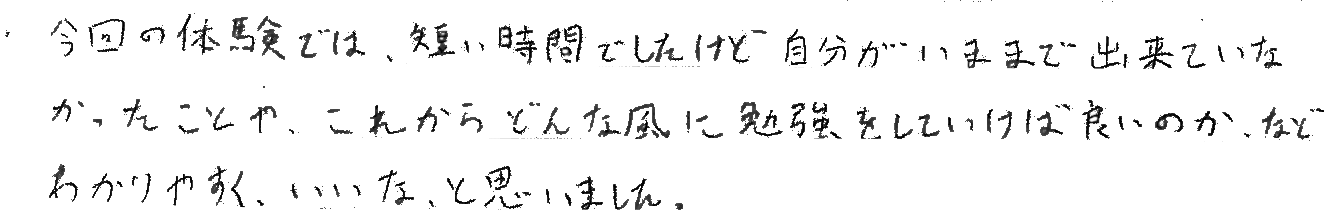 ・今回の体験では、短い時間でしたけど自分がいままで出来ていな
かったことや、これからどんな風に勉強をしていけば良いのか、など
わかりやすく、いいな、と思いました。